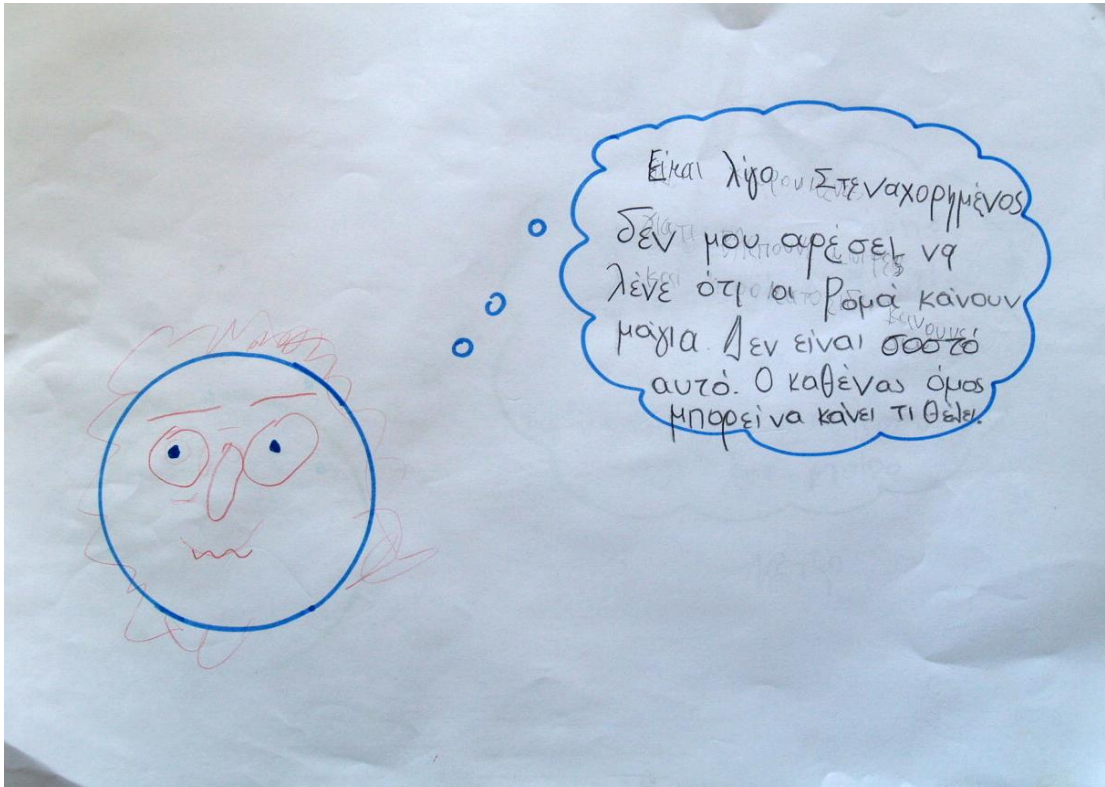 Είμαι λίγο Στεναχορημένος
δεν μου αρέσει να
λένε ότι οι Ρομά κάνουν
μάγια. Δεν είναι σοστό
αυτό. Ο καθένας όμος
μπορεί να κάνει τι θέλει.